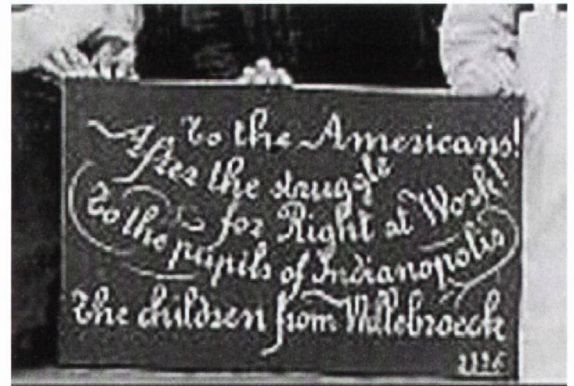 To the Americans!
After the struggle
for Right at Work!
To the pupils of Indianopolis
The children from Willebroeck